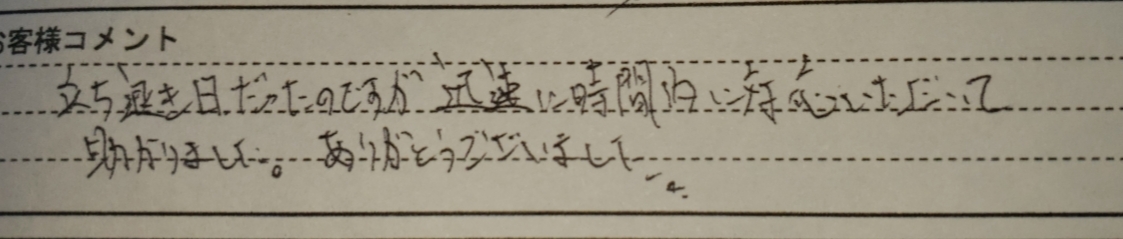 お客様コメント
立ち退き日だったのですが迅速に時間内に対応していただいて
助かりました。ありがとうございました